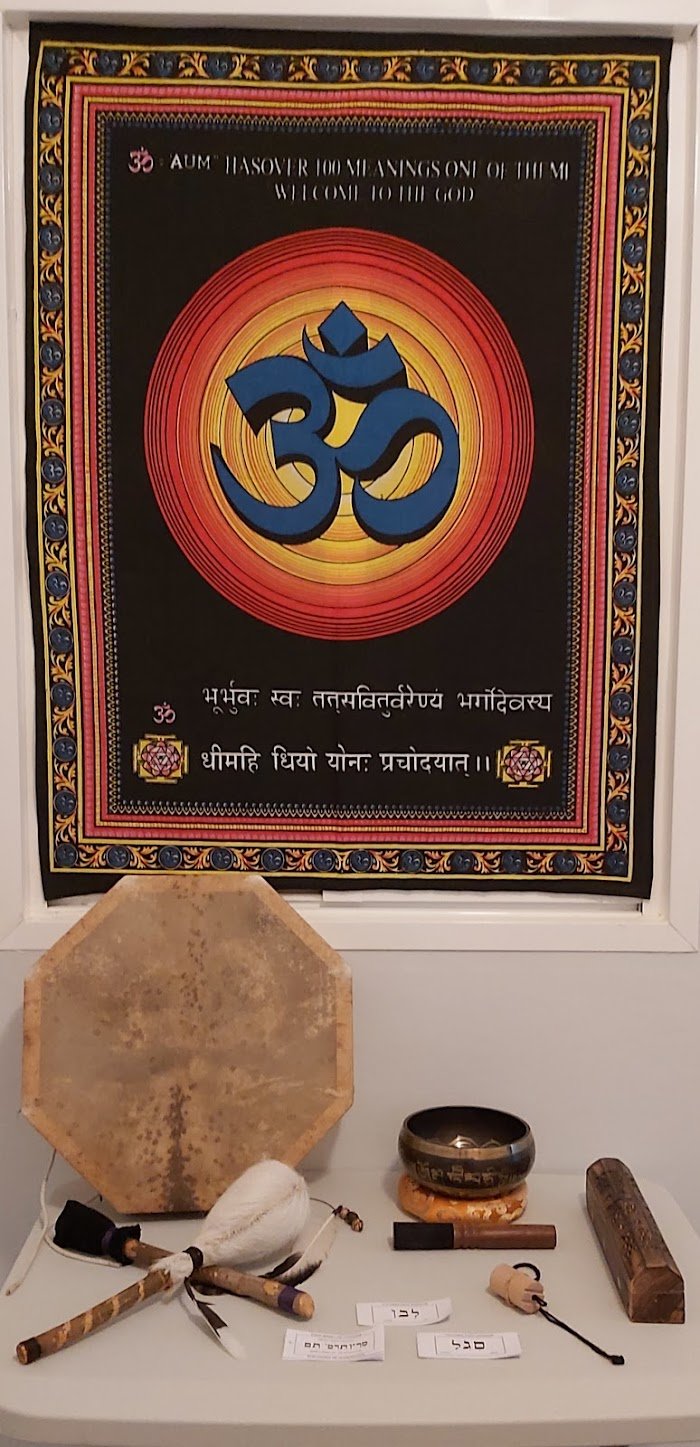 ॐ : "AUM" HASOVER 100 MEANINGS ONE OF THEM I
WELCOME TO THE GOD
ॐ
भूर्भुवः स्वः तत्सवितुर्वरेण्यं भर्गोदेवस्य
ॐ
धीमहि धियो योनः प्रचोदयात् ।।
לבן
סגל